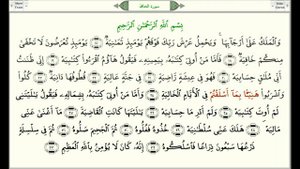 سورة الحاقة
بِسْمِ اللَّهِ الرَّحْمَٰنِ الرَّحِيمِ
وَالْمَلَكُ عَلَىٰ أَرْجَائِهَا ۚ وَيَحْمِلُ عَرْشَ رَبِّكَ فَوْقَهُمْ يَوْمَئِذٍ ثَمَانِيَةٌ ﴿١٧﴾ يَوْمَئِذٍ تُعْرَضُونَ لَا تَخْفَىٰ
مِنكُمْ خَافِيَةٌ ﴿١٨﴾ فَأَمَّا مَنْ أُوتِيَ كِتَابَهُ بِيَمِينِهِ فَيَقُولُ هَاؤُمُ اقْرَءُوا كِتَابِيَهْ ﴿١٩﴾ إِنِّي ظَنَنتُ
أَنِّي مُلَاقٍ حِسَابِيَهْ ﴿٢٠﴾ فَهُوَ فِي عِيشَةٍ رَّاضِيَةٍ ﴿٢١﴾ فِي جَنَّةٍ عَالِيَةٍ ﴿٢٢﴾ قُطُوفُهَا دَانِيَةٌ ﴿٢٣﴾ كُلُوا
وَاشْرَبُوا هَنِيئًا بِمَا أَسْلَفْتُمْ فِي الْأَيَّامِ الْخَالِيَةِ ﴿٢٤﴾ وَأَمَّا مَنْ أُوتِيَ كِتَابَهُ بِشِمَالِهِ فَيَقُولُ يَا لَيْتَنِي
لَمْ أُوتَ كِتَابِيَهْ ﴿٢٥﴾ وَلَمْ أَدْرِ مَا حِسَابِيَهْ ﴿٢٦﴾ يَا لَيْتَهَا كَانَتِ الْقَاضِيَةَ ﴿٢٧﴾ مَا أَغْنَىٰ عَنِّي
مَالِيَهْ ۜ ﴿٢٨﴾ هَلَكَ عَنِّي سُلْطَانِيَهْ ﴿٢٩﴾ خُذُوهُ فَغُلُّوهُ ﴿٣٠﴾ ثُمَّ الْجَحِيمَ صَلُّوهُ ﴿٣١﴾ ثُمَّ فِي سِلْسِلَةٍ
ذَرْعُهَا سَبْعُونَ ذِرَاعًا فَاسْلُكُوهُ ﴿٣٢﴾ إِنَّهُ كَانَ لَا يُؤْمِنُ بِاللَّهِ الْعَظِيمِ ﴿٣٣﴾